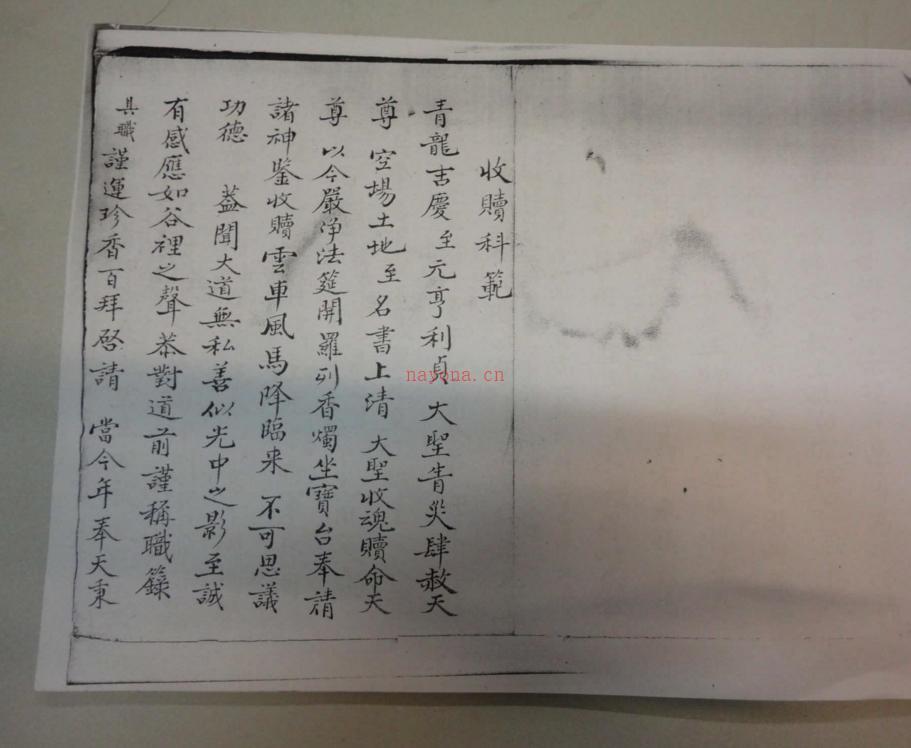 收贖科範
青龍吉慶至元亨利貞 大聖眚災肆赦天
尊 空場土地至名書上清 大聖收魂贖命天
尊 以今嚴浄法筵開羅列香燭坐寶台奉請
諸神鉴收贖雲車風馬降臨来 不可思議
功德 葢聞大道無私善似光中之影至誠
有感應如谷裡之聲恭對道前謹稱職籙
具職謹運珍香百拜啓請 當今年奉天秉
nayona.cn